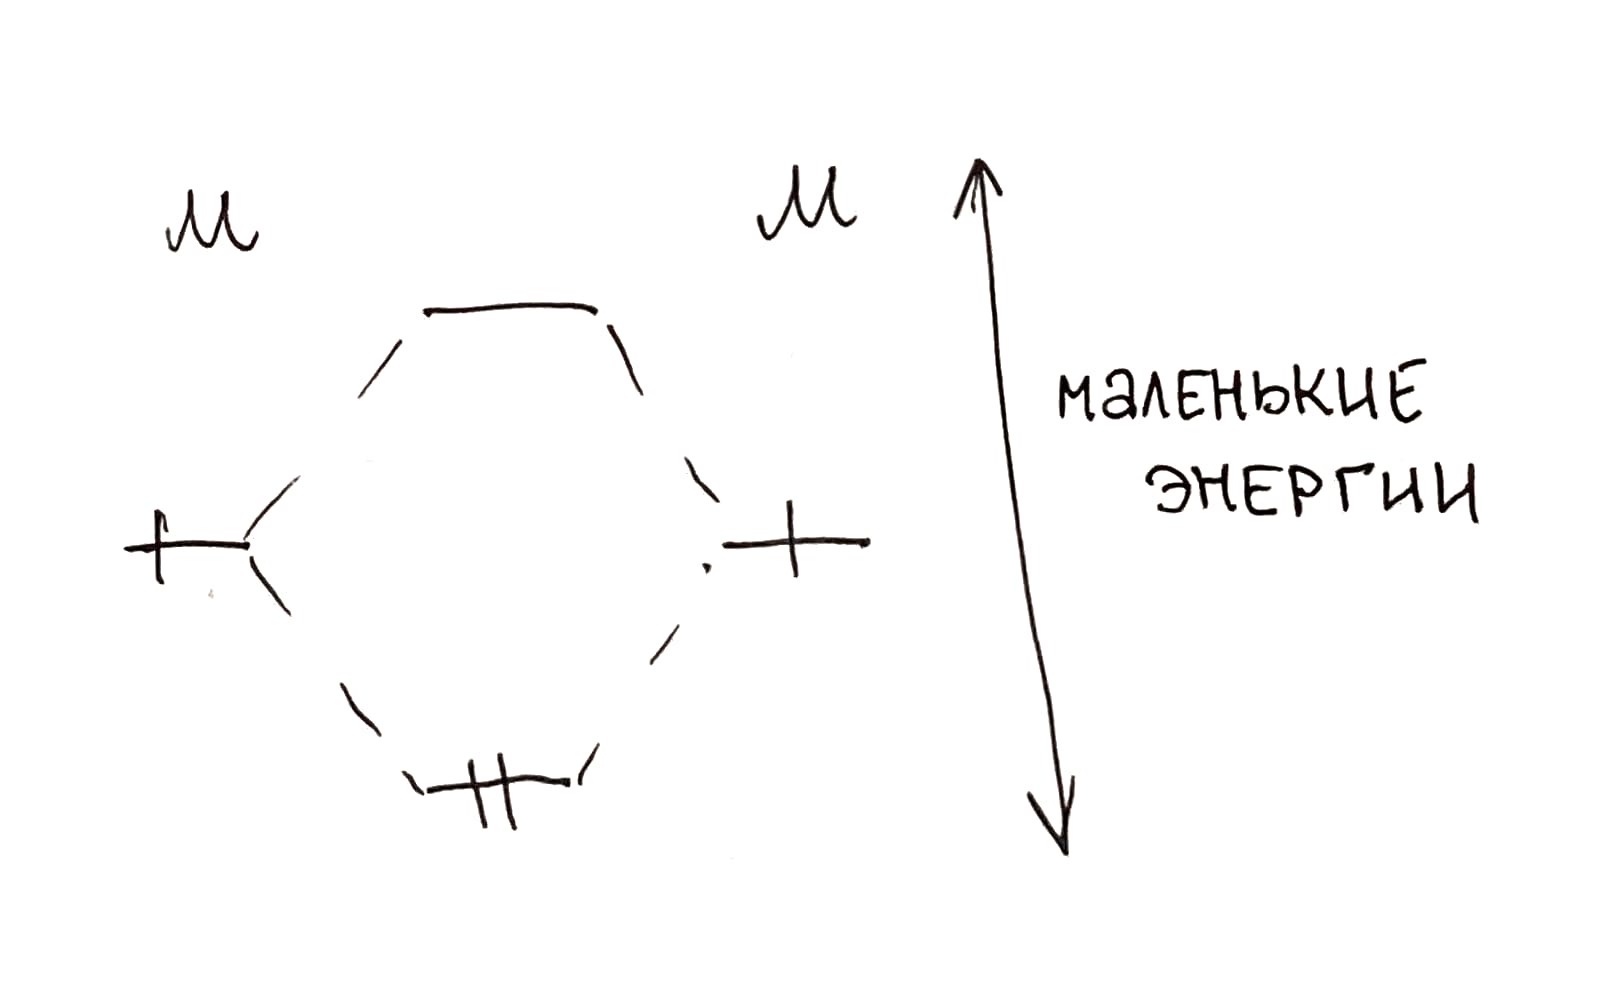 м м
маленькие
энергии